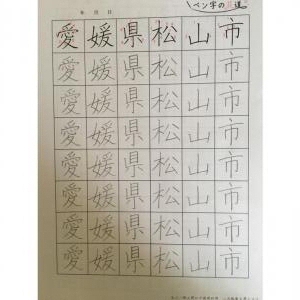 年 月 日
ペン字の道
愛媛県松山市
愛媛県松山市
愛媛県松山市
愛媛県松山市
愛媛県松山市
愛媛県松山市
愛媛県松山市
愛媛県松山市